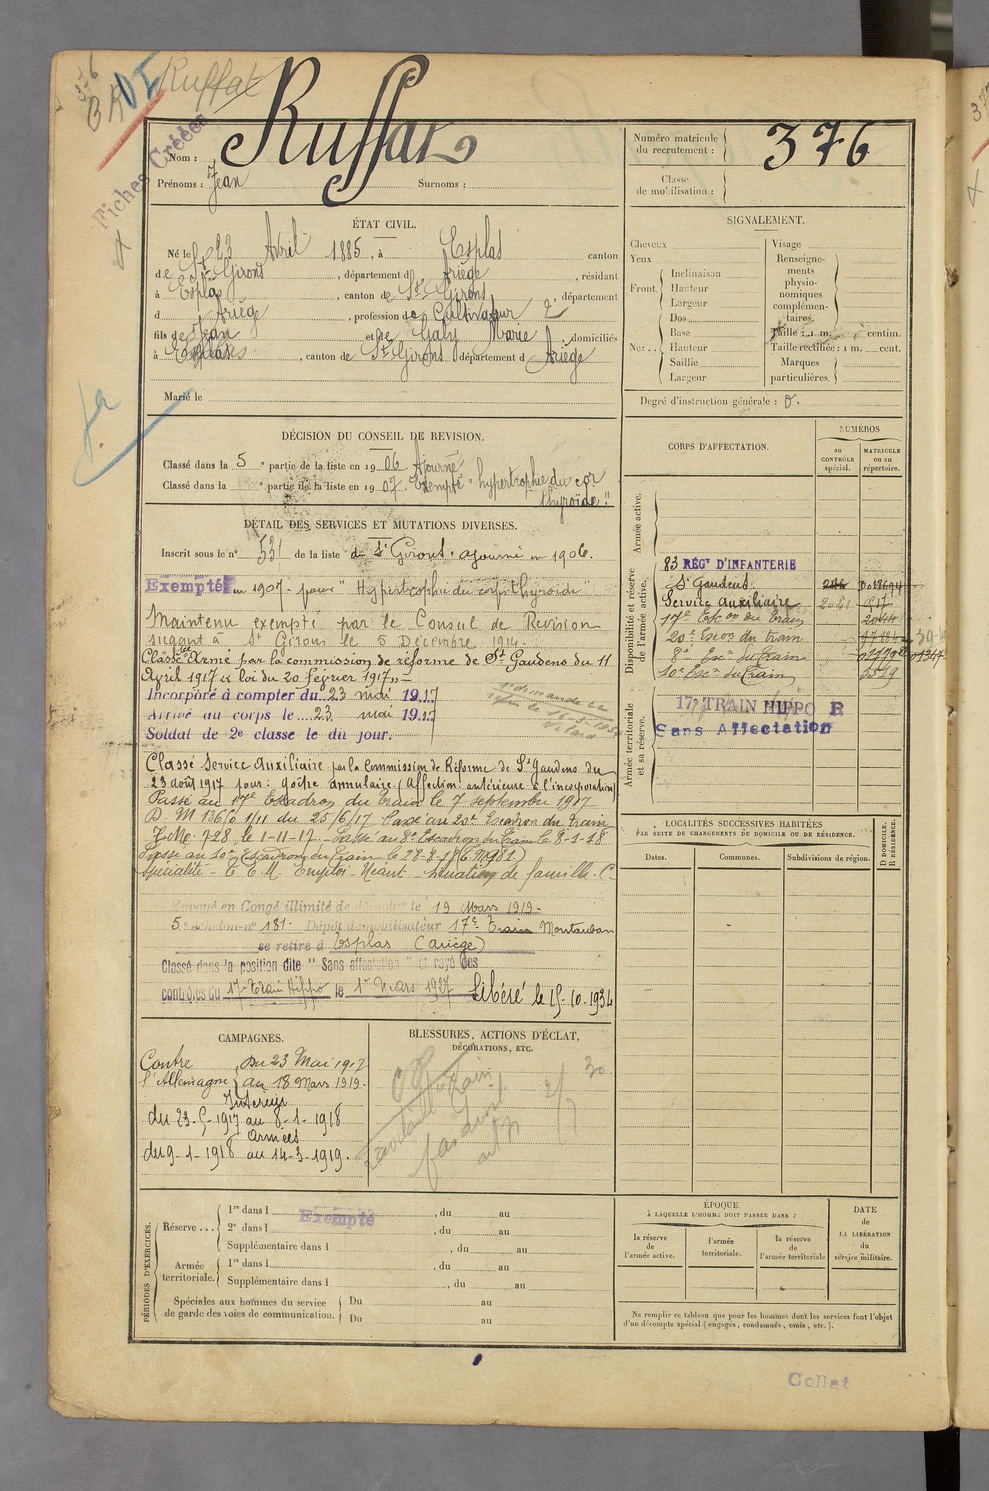 376
Ruffat
Fiches Créées
Nom : Ruffat
Prénoms : Jean Surnoms :
Numéro matricule du recrutement : 376
Classe de mobilisation :
ÉTAT CIVIL.
Né le 23 Avril 1885, à Esplas canton
de St Girons, département d Ariège, résidant
à Esplas, canton de St Girons, département
d Ariège, profession de Cultivateur
fils de Jean et de Galy Marie, domiciliés
à Esplas, canton de St Girons département d Ariège
Marié le
SIGNALEMENT.
Cheveux
Yeux
Front. Inclinaison
Hauteur
Largeur
Nez .. Dos
Base
Hauteur
Saillie
Largeur
Visage
Renseignements physionomiques complémentaires.
Taille : 1 m. centim.
Taille rectifiée : 1 m. cent.
Marques particulières.
Degré d'instruction générale : 0.
DÉCISION DU CONSEIL DE REVISION.
Classé dans la 5e partie de la liste en 1906. Ajourné
Classé dans la e partie de la liste en 1907. Exempté "hypertrophie du cor
thyroïde"
DÉTAIL DES SERVICES ET MUTATIONS DIVERSES.
Inscrit sous le n° 531 de la liste de St Girons. ajourné en 1906.
Exempté en 1907 - pour "Hypertrophie du corps thyroïde
Maintenu exempté par le Conseil de Révision
siégeant à St Girons le 5 Décembre 1914.
Classé Sce Armé par la commission de réforme de St Gaudens du 11
Avril 1917 "loi du 20 février 1917" -
Incorporé à compter du 23 mai 1917
Arrivé au corps le 23 mai 1917
Soldat de 2e classe le du jour.
Classé Service Auxiliaire par la Commission de Réforme de St Gaudens du
23 août 1917 pour : goitre annulaire (Affection antérieure à l'incorporation)
Passé au 17e Escadron du Train le 7 septembre 1917
D. M 13660 1/11 du 25/6/17 Passé au 20e Escadron du Train
728 le 1-11-17 - Passé au 8e Escadron du Train le 8-1-18
Passé au 20e Escadron du Train le 28-8-18
Spécialité - Emploi - Néant - Situation de famille. C
Renvoyé en Congé illimité de le 19 Mars 1919 -
5e échelon n° 181. Dépôt démobilisateur 17e Train Montauban
se retire à Esplas (Ariège)
Classé dans la position dite "Sans affectation" et rayé des
contrôles du 17e Train Hippo le 1er Mars 1927 Libéré le 15-10-1934
CORPS D'AFFECTATION.
NUMÉROS
au CONTRÔLE spécial.
MATRICULE ou au répertoire.
Armée active.
Disponibilité et réserve de l'armée active.
83 RÉGt D'INFANTERIE
St Gaudens.
Service auxiliaire
17e Escon du Train
20e Escon du train
8e Escn du Train
20e Escn du Train
Armée territoriale et sa réserve.
17e TRAIN HIPPO R
Sans Affectation
LOCALITÉS SUCCESSIVES HABITÉES
PAR SUITE DE CHANGEMENTS DE DOMICILE OU DE RÉSIDENCE.
Dates.
Communes.
Subdivisions de région.
D DOMICILE. R RÉSIDENCE.
CAMPAGNES.
Contre l'Allemagne Du 23 Mai 1917
au 18 Mars 1919.
Intérieur
du 23-5-1917 au 8-1-1918
Armées
du 9-1-1918 au 14-3-1919.
BLESSURES, ACTIONS D'ÉCLAT,
DÉCORATIONS, ETC.
PÉRIODES D'EXERCICES.
Réserve ... 1re dans l Exempté, du au
2e dans l , du au
Supplémentaire dans l , du au
Armée territoriale. 1re dans l , du au
Supplémentaire dans l , du au
Spéciales aux hommes du service de garde des voies de communication. Du au
Du au
ÉPOQUE
À LAQUELLE L'HOMME DOIT PASSER DANS :
la réserve de l'armée active.
l'armée territoriale.
la réserve de l'armée territoriale
DATE de LA LIBÉRATION du service militaire.
Ne remplir ce tableau que pour les hommes dont les services font l'objet
d'un décompte spécial (engagés, condamnés, omis, etc.).
Collat